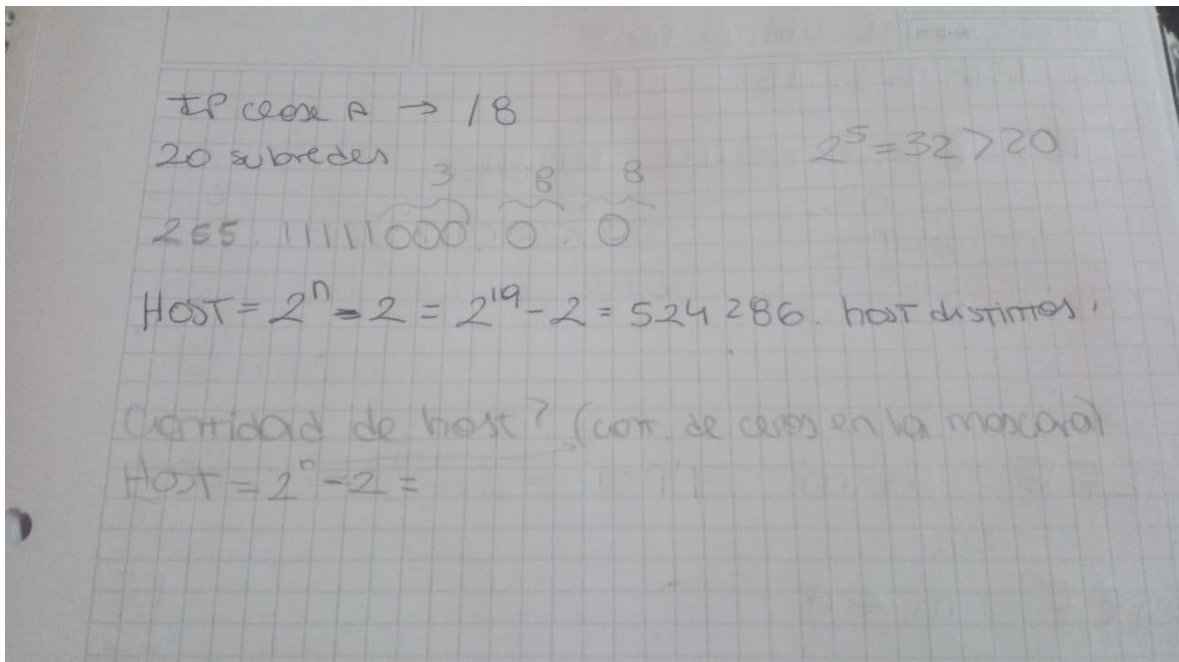 FECHA
IP clase A → /8
2⁵ = 32 > 20
20 subredes
3 8 8
255. 11111000. 0. 0
HOST = 2ⁿ - 2 = 2¹⁹ - 2 = 524 286. host distintos.
Cantidad de host? (con. de ceros en la mascara)
HOST = 2ⁿ - 2 =